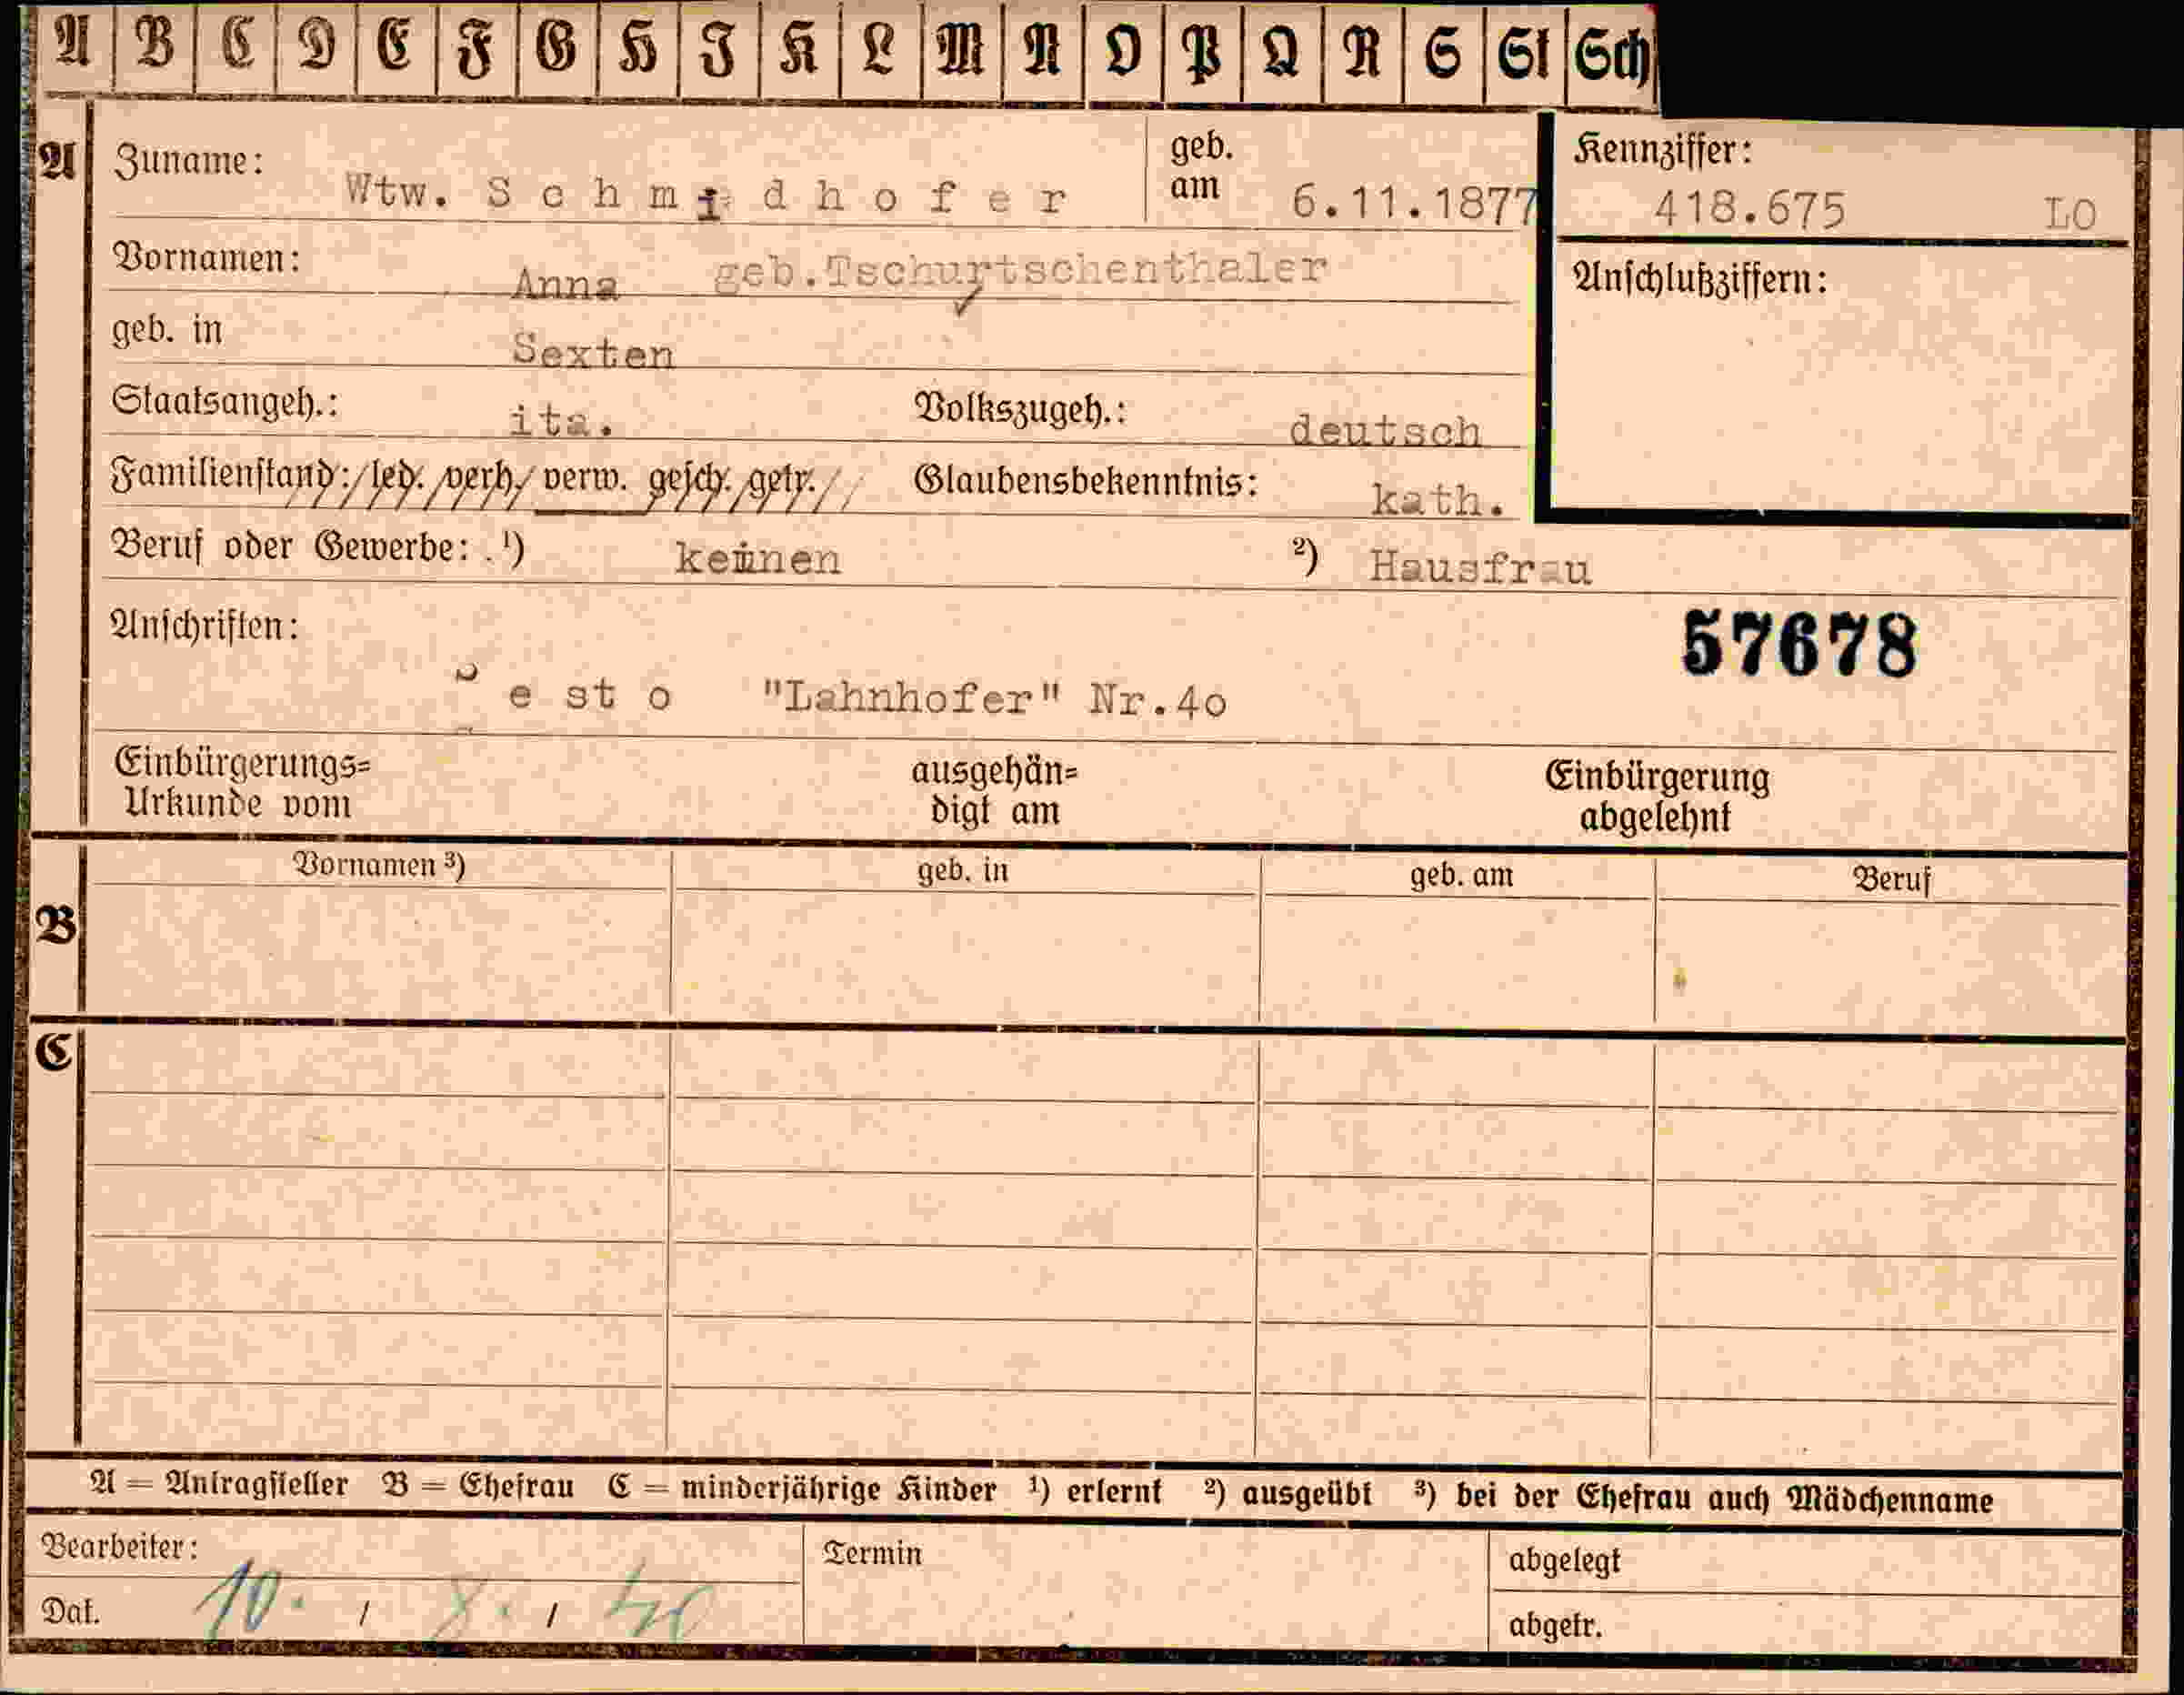 A B C D E F G H I K L M N O P Q R S St Sch
A Zuname: Wtw. Schmidhofer geb. am 6.11.1877
Kennziffer: 418.675 LO
Vornamen: Anna geb.Tschurtschenthaler
Anschlußziffern:
geb. in Sexten
Staatsangeh.: ita. Volkszugeh.: deutsch
Familienstand: led. verh. verw. gesch. getr. Glaubensbekenntnis: kath.
Beruf oder Gewerbe: .¹) keinen ²) Hausfrau
Anschriften: 57678
"Lahnhofer" Nr.40
Einbürgerungs=
Urkunde vom
ausgehän=
digt am
Einbürgerung
abgelehnt
B Vornamen ³) geb. in geb. am Beruf
C
A = Antragsteller B = Ehefrau C = minderjährige Kinder ¹) erlernt ²) ausgeübt ³) bei der Ehefrau auch Mädchenname
Bearbeiter: Termin abgelegt
Dat. 10. / 8. / 40 abgetr.